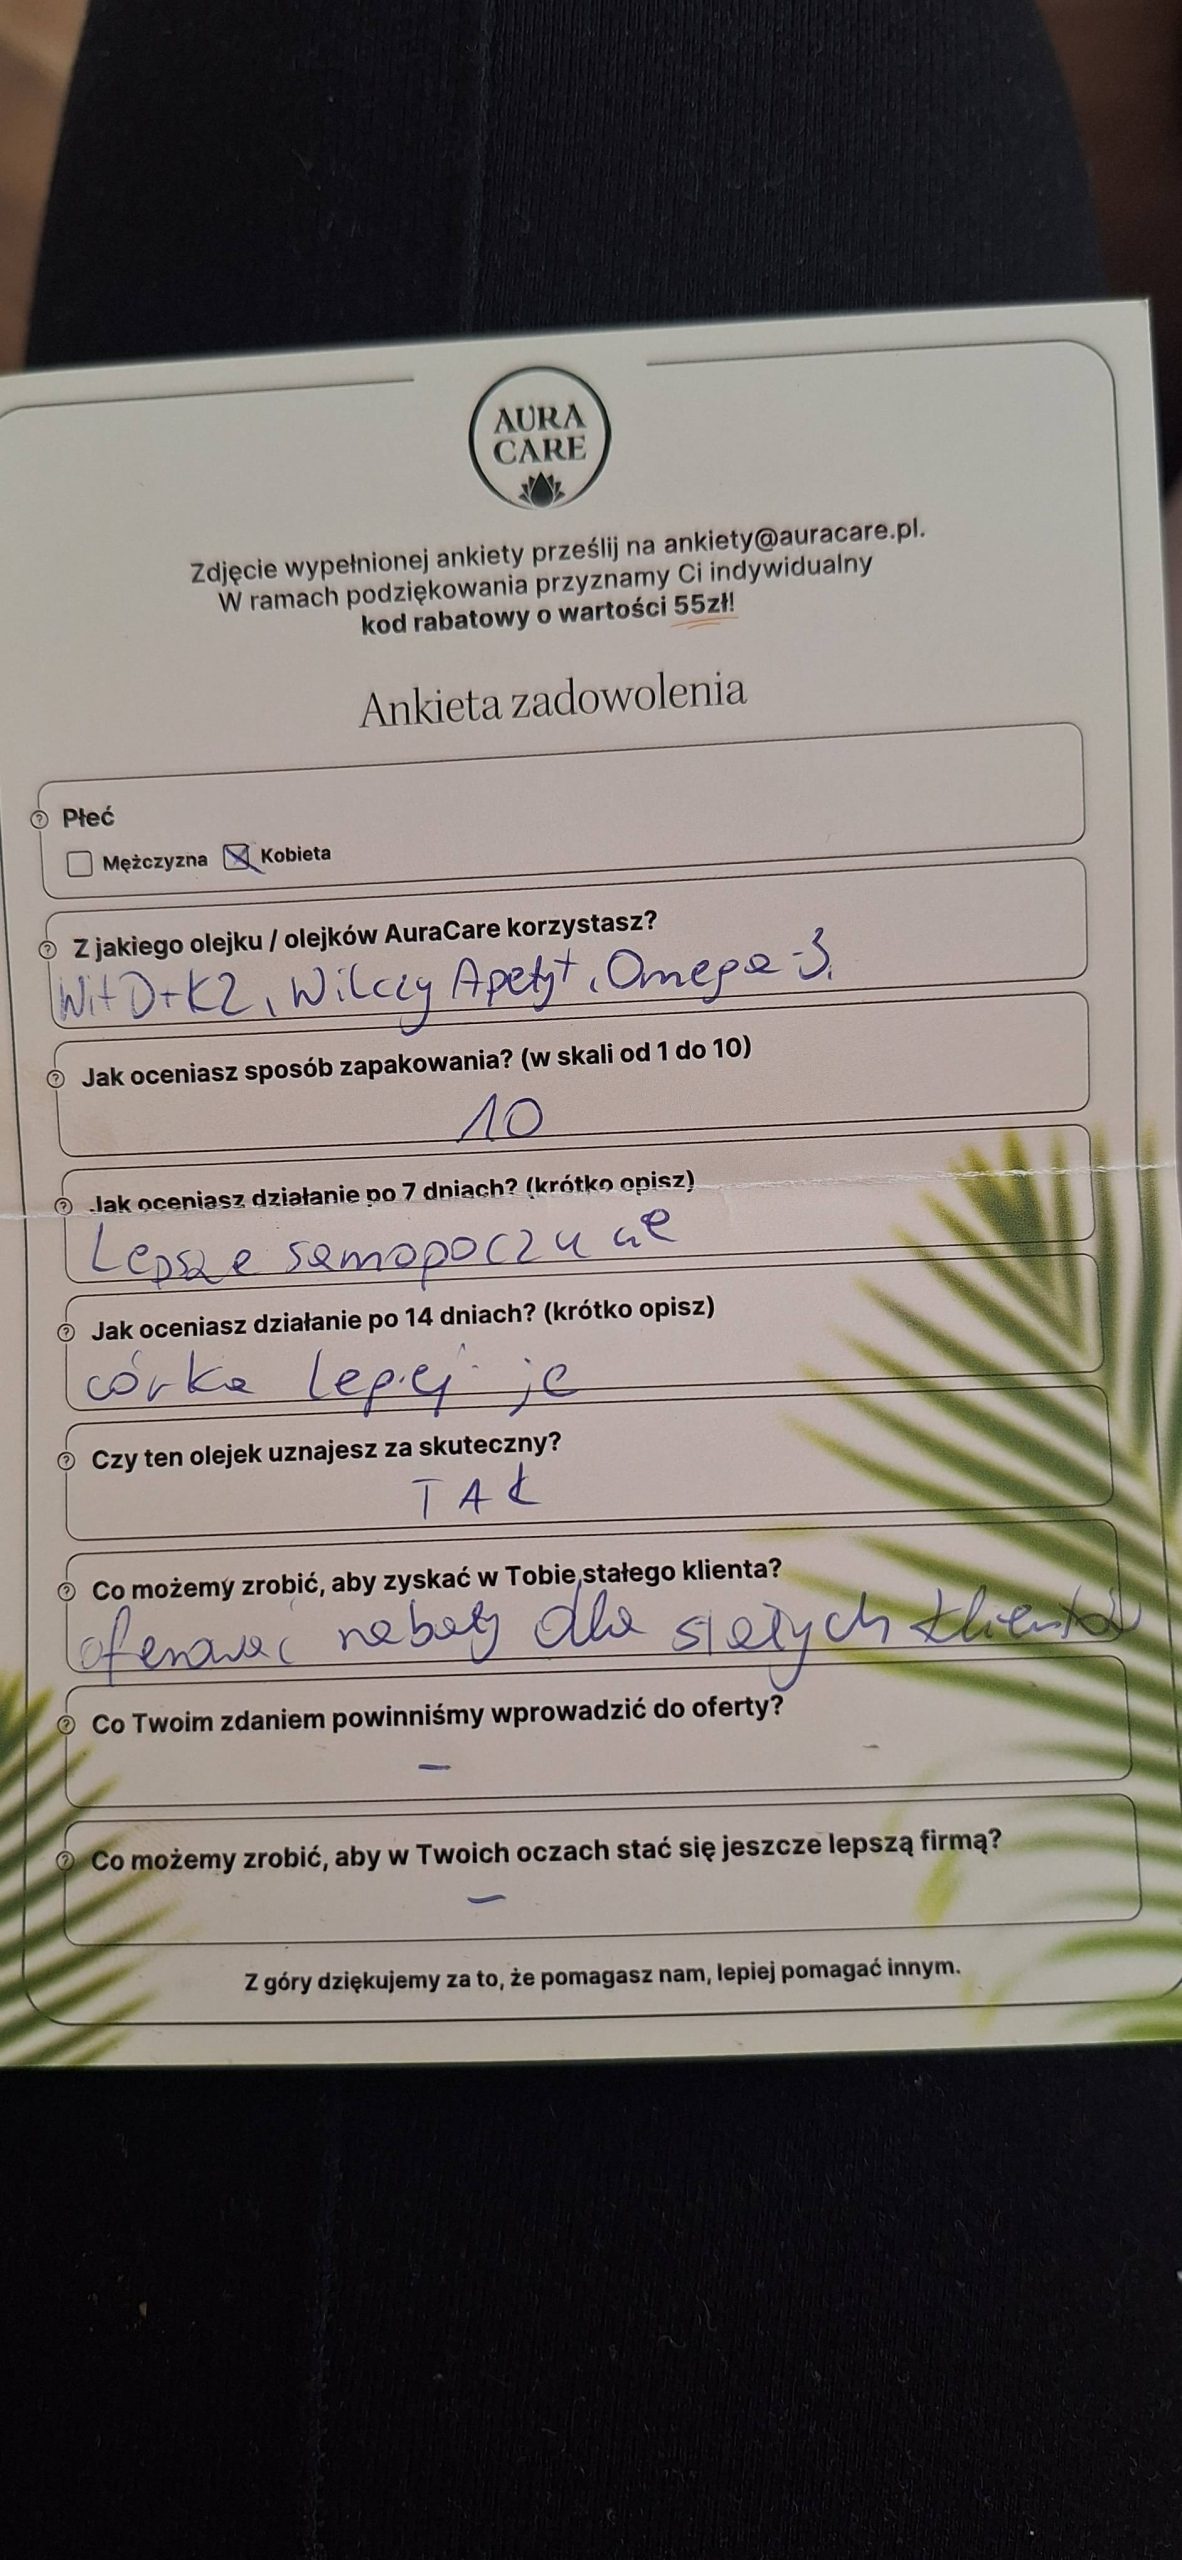 AURA
CARE
Zdjęcie wypełnionej ankiety prześlij na ankiety@auracare.pl.
W ramach podziękowania przyznamy Ci indywidualny
kod rabatowy o wartości 55zł!
Ankieta zadowolenia
Płeć
Mężczyzna Kobieta
Z jakiego olejku / olejków AuraCare korzystasz?
Wit D+K2, Wilczy Apetyt, Omega-3.
Jak oceniasz sposób zapakowania? (w skali od 1 do 10)
10
Jak oceniasz działanie po 7 dniach? (krótko opisz)
Lepsze samopoczucie
Jak oceniasz działanie po 14 dniach? (krótko opisz)
córka lepiej je
Czy ten olejek uznajesz za skuteczny?
TAK
Co możemy zrobić, aby zyskać w Tobie stałego klienta?
oferować rabaty dla stałych klientów
Co Twoim zdaniem powinniśmy wprowadzić do oferty?
–
Co możemy zrobić, aby w Twoich oczach stać się jeszcze lepszą firmą?
–
Z góry dziękujemy za to, że pomagasz nam, lepiej pomagać innym.